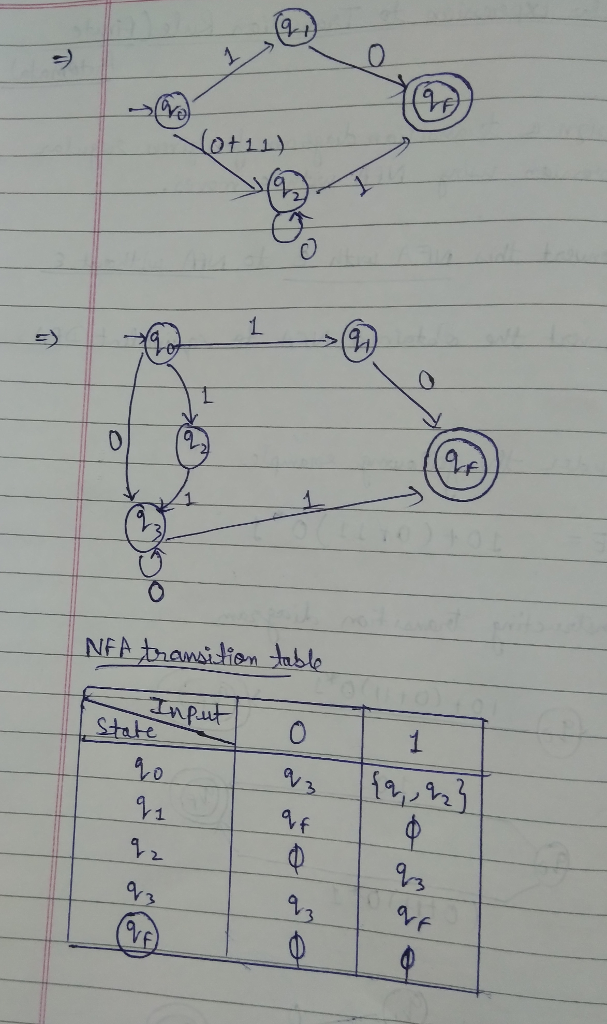 ⇒
q₁
1
0
→ q₀
qf
(0+11)
q₂
1
0
⇒
→ q₀
1
q₁
1
0
0
q₂
qf
1
q₃
1
0
NFA transition table
Input
State
0
1
q₀ q₃ {q₁, q₂}
q₁ qf ϕ
q₂ ϕ q₃
q₃ q₃ qf
qf ϕ ϕ